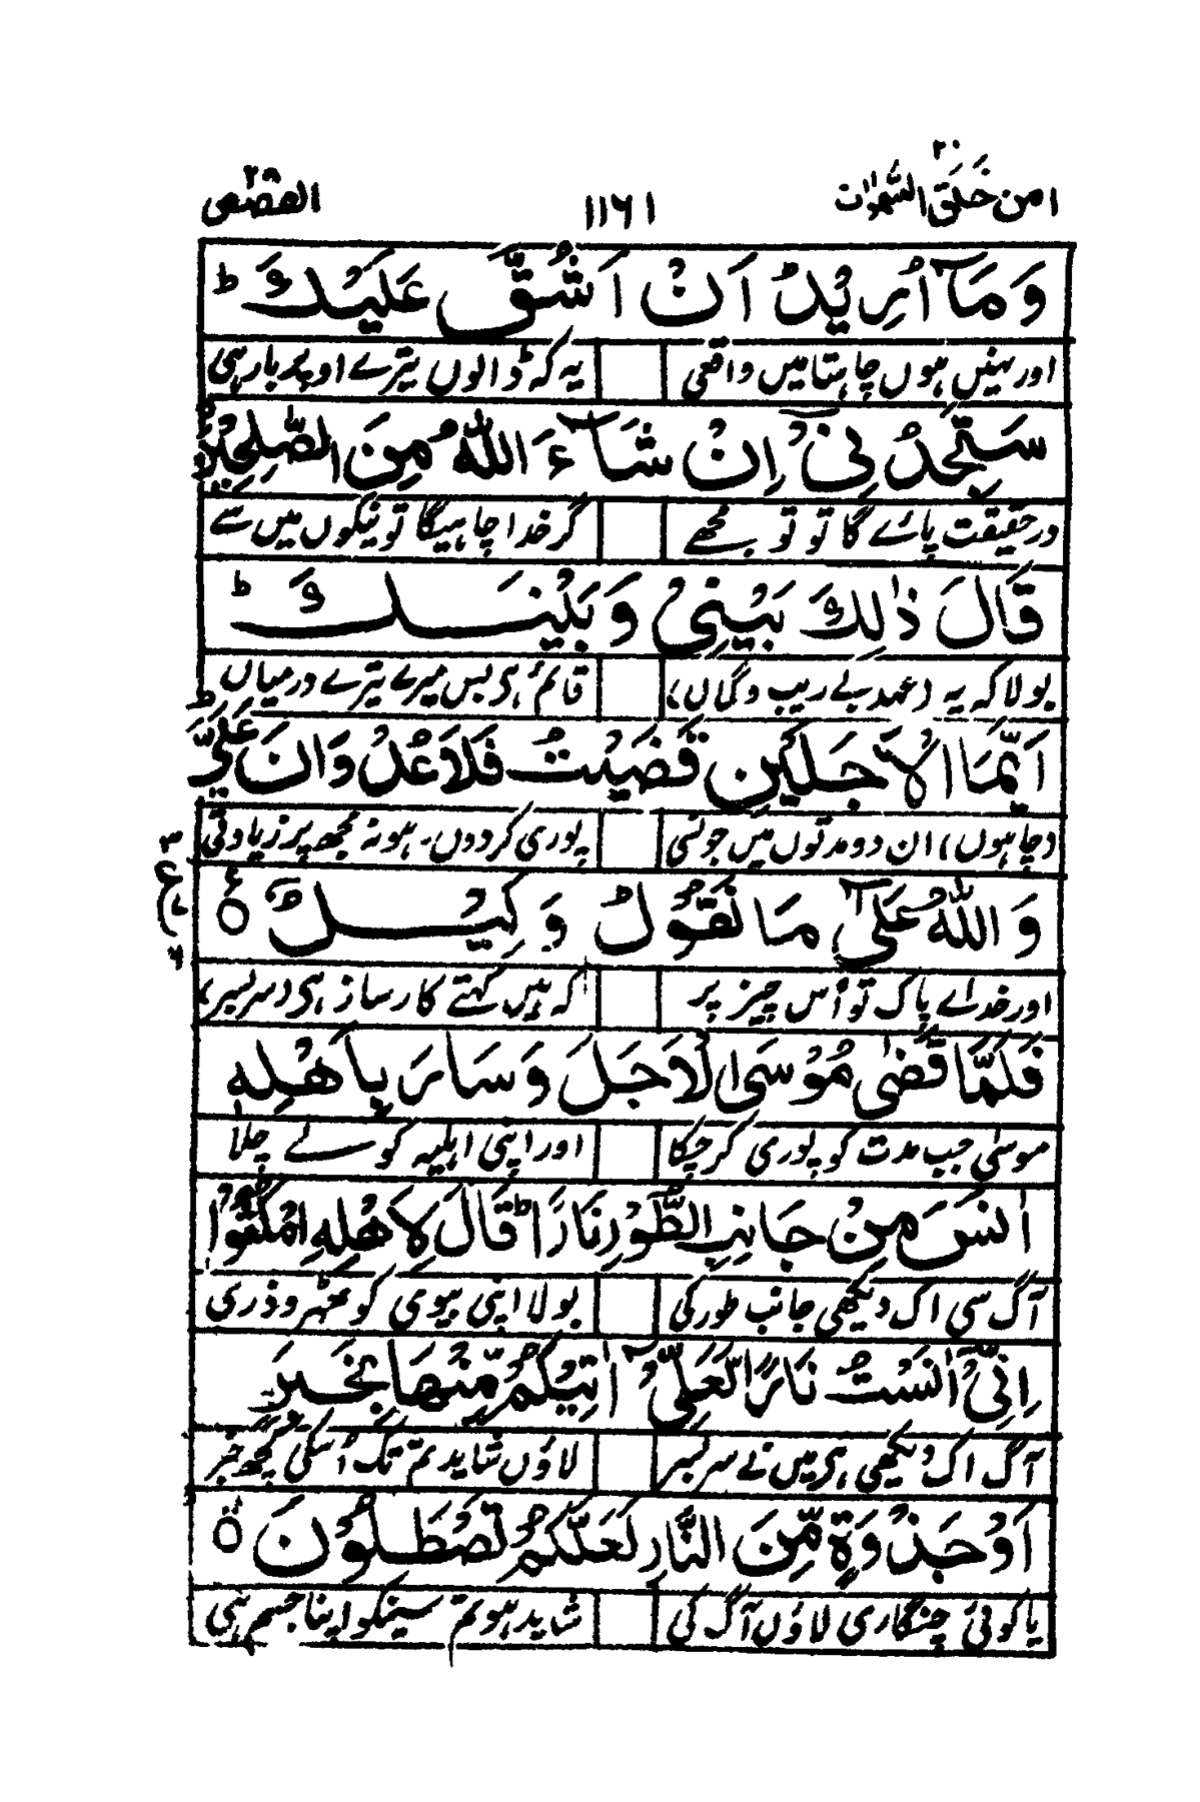 امن خلق السموات ۲۰
۱۱۶۱
القصص ۲۸
وَمَآ اُرِيْدُ اَنْ اَشُقَّ عَلَيْكَ ؕ
اور نہیں ہوں چاہتا میں واقعی یہ کہ ڈالوں تیرے اوپر بار ہی
سَتَجِدُنِيْٓ اِنْ شَآءَ اللّٰهُ مِنَ الصّٰلِحِيْنَ
در حقیقت پائے گا تو تو مجھے گر خدا چاہیگا تو نیکوں میں سے
قَالَ ذٰلِكَ بَيْنِيْ وَبَيْنَكَ ؕ
بولا کہ یہ (عہد بے ریب و گماں) قائم ہی بس میرے تیرے درمیاں
اَيَّمَا الْاَجَلَيْنِ قَضَيْتُ فَلَا عُدْوَانَ عَلَيَّ ؕ
(چاہوں) ان دو مدتوں میں جونسی پوری کر دوں۔ ہو نہ مجھ پر زیادتی
وَاللّٰهُ عَلٰى مَا نَقُوْلُ وَكِيْلٌ ۞
ع
اور خدائے پاک تو اُس چیز پر کہ ہیں کہتے کارساز ہی (سربسر)
فَلَمَّا قَضٰى مُوْسَى الْاَجَلَ وَسَارَ بِاَهْلِهٖٓ
موسٰی جب مدت کو پوری کر چکا اور اپنی اہلیہ کو لے چلا
اٰنَسَ مِنْ جَانِبِ الطُّوْرِ نَارًا ؕ قَالَ لِاَهْلِهِ امْكُثُوْٓا
آگ سی اک دیکھی جانب طور کی بولا اپنی بیوی کو ٹھہرو ذری
اِنِّيْٓ اٰنَسْتُ نَارًا لَّعَلِّيْٓ اٰتِيْكُمْ مِّنْهَا بِخَبَرٍ
آگ اک دیکھی ہی میں نے سربسر لاؤں شاید تم تک اُسکی کچھ خبر
اَوْ جَذْوَةٍ مِّنَ النَّارِ لَعَلَّكُمْ تَصْطَلُوْنَ ۞
یا کوئی چنگاری لاؤں آگ کی شاید ہو تم سینکو اپنا جسم ہی